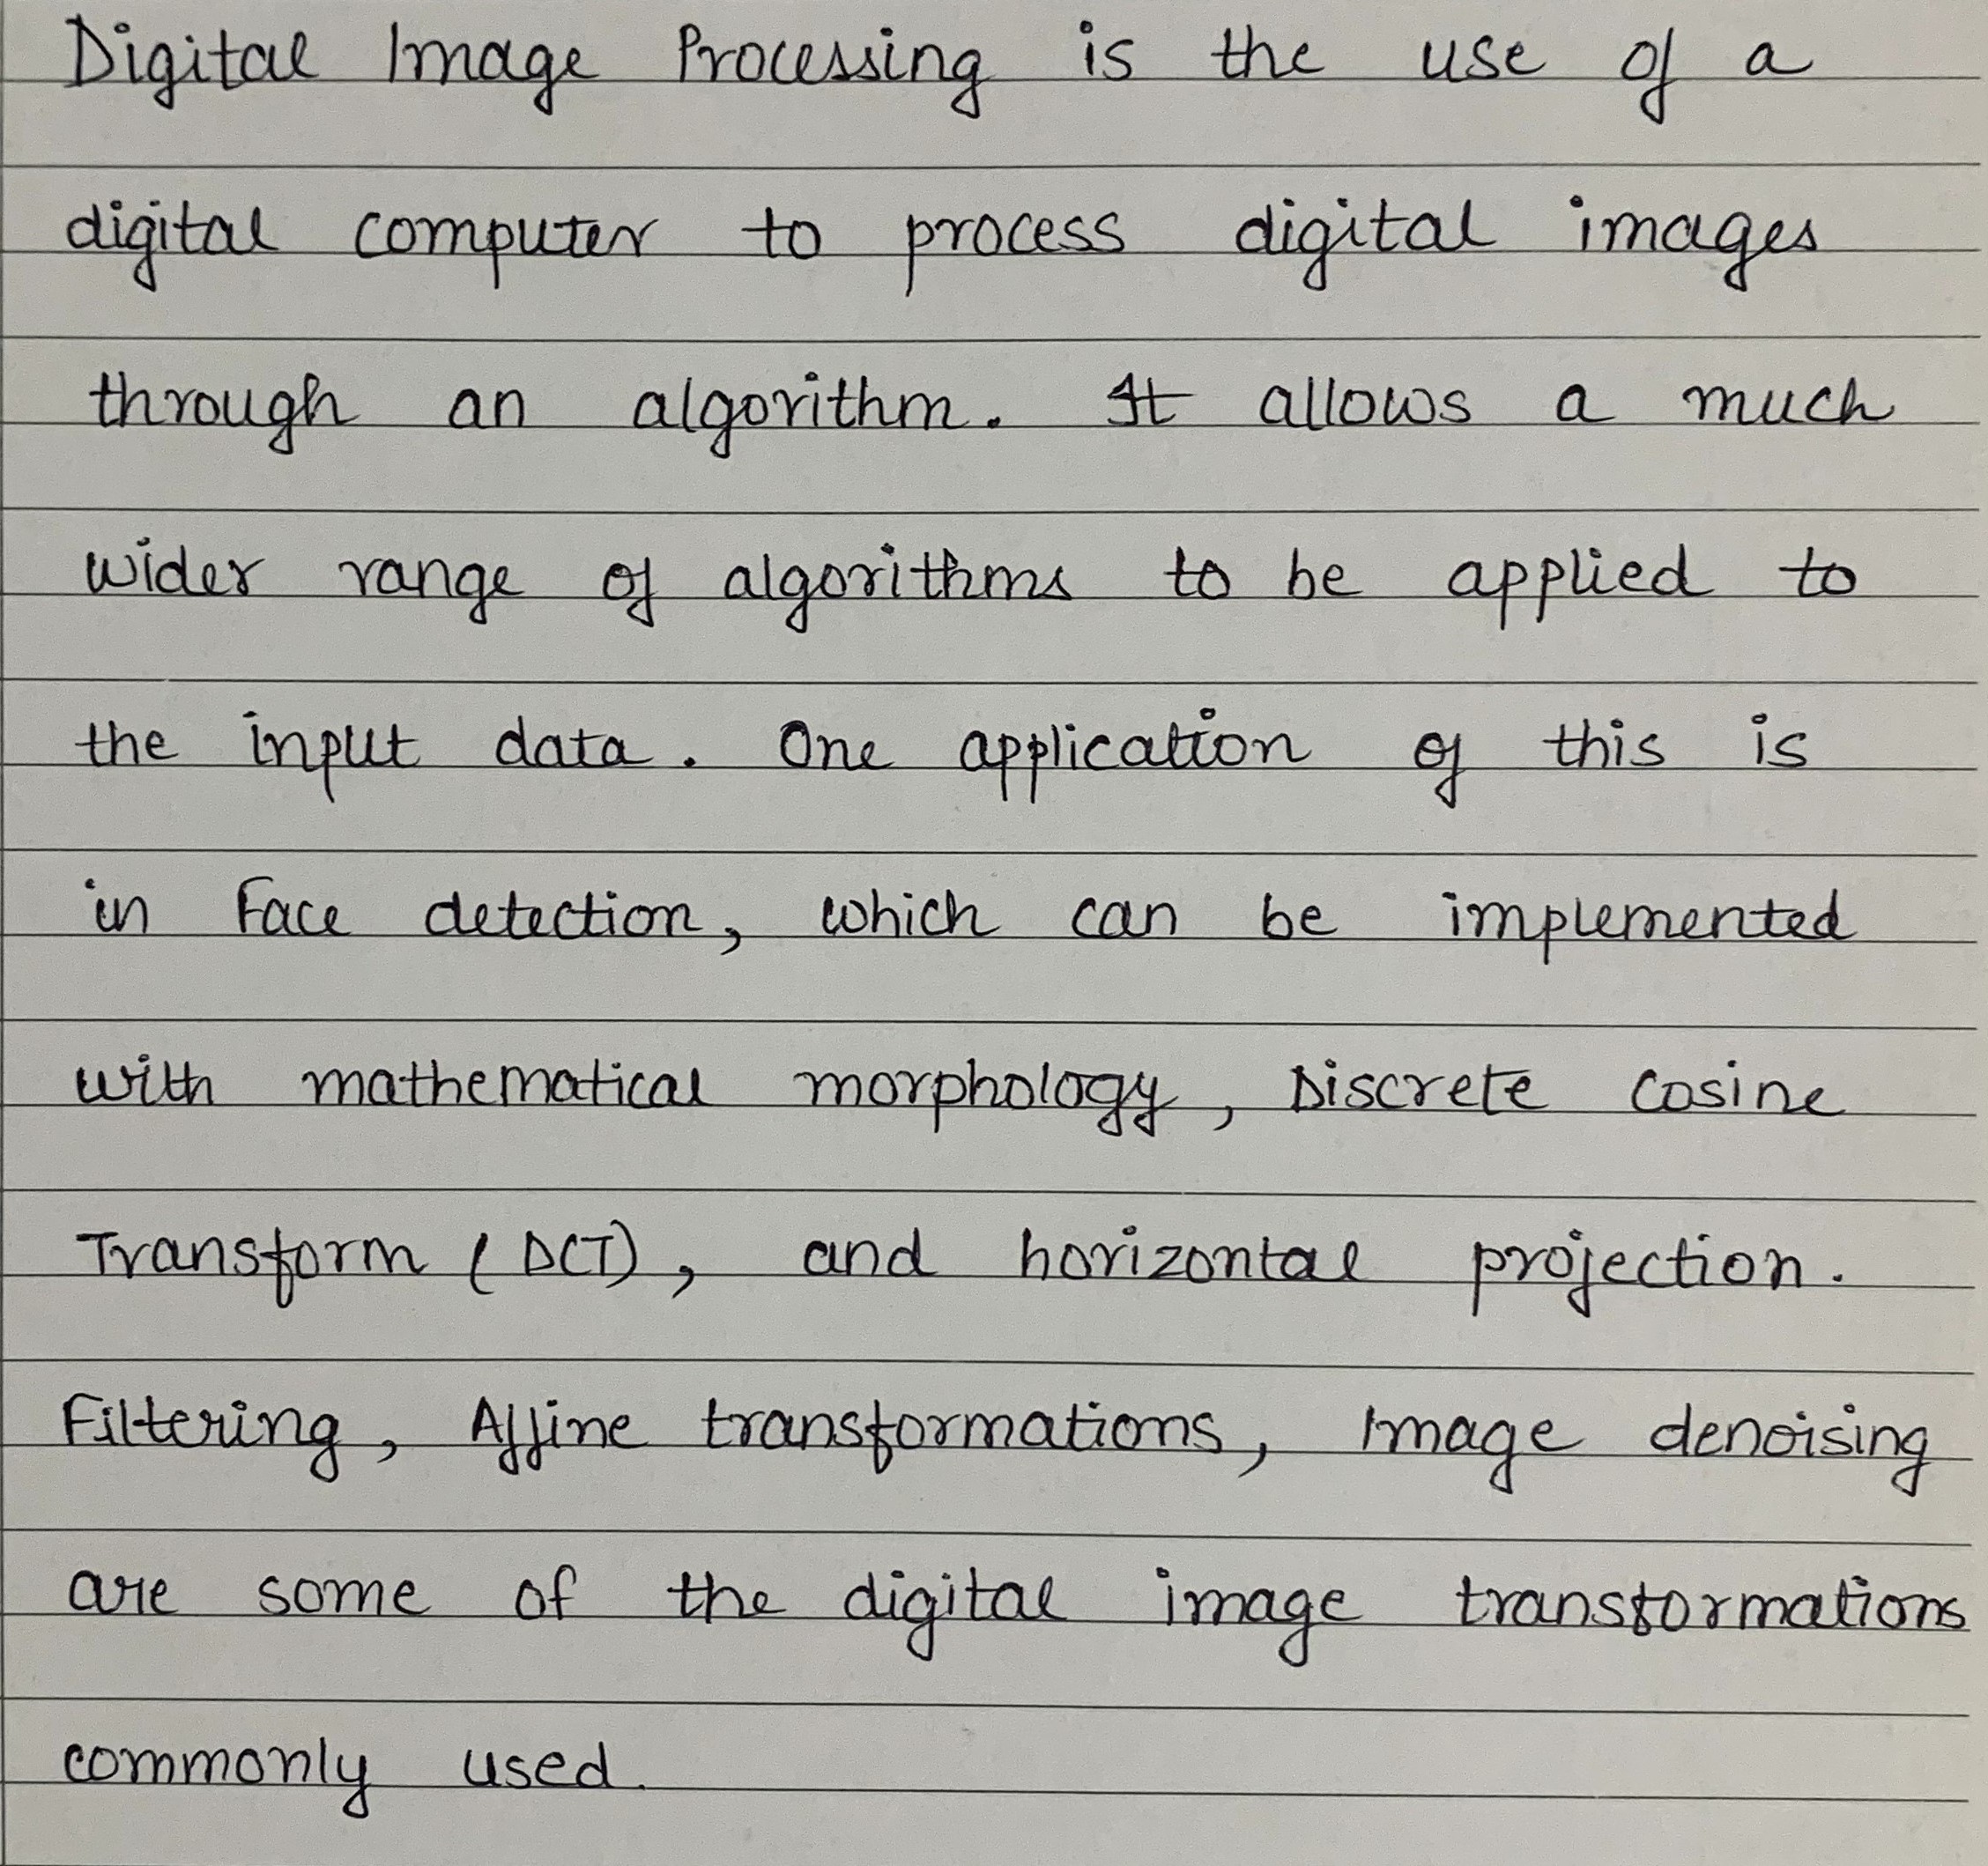 Digital Image Processing is the use of a
digital computer to process digital images
through an algorithm. It allows a much
wider range of algorithms to be applied to
the input data. One application of this is
in Face detection, which can be implemented
with mathematical morphology, Discrete Cosine
Transform (DCT), and horizontal projection.
Filtering, Affine transformations, Image denoising
are some of the digital image transformations
commonly used.